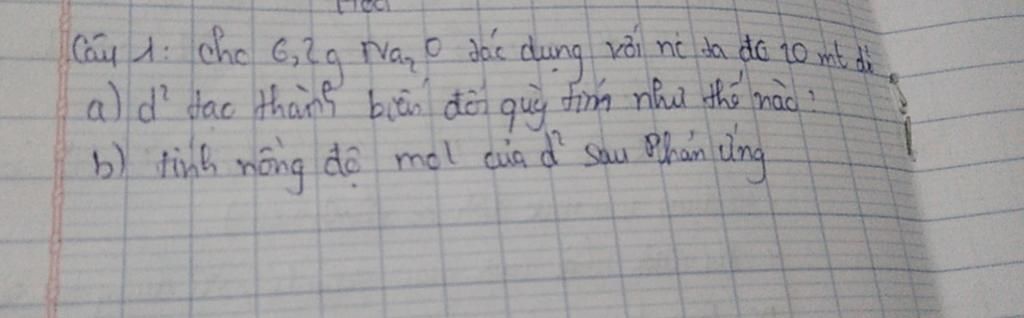 Câu 1: Cho 6,2g Na₂O tác dụng với nc ta đc 10 ml d²
a) d² tạo thành biến đổi quỳ tím như thế nào?
b) tính nồng độ mol của d² sau phản ứng